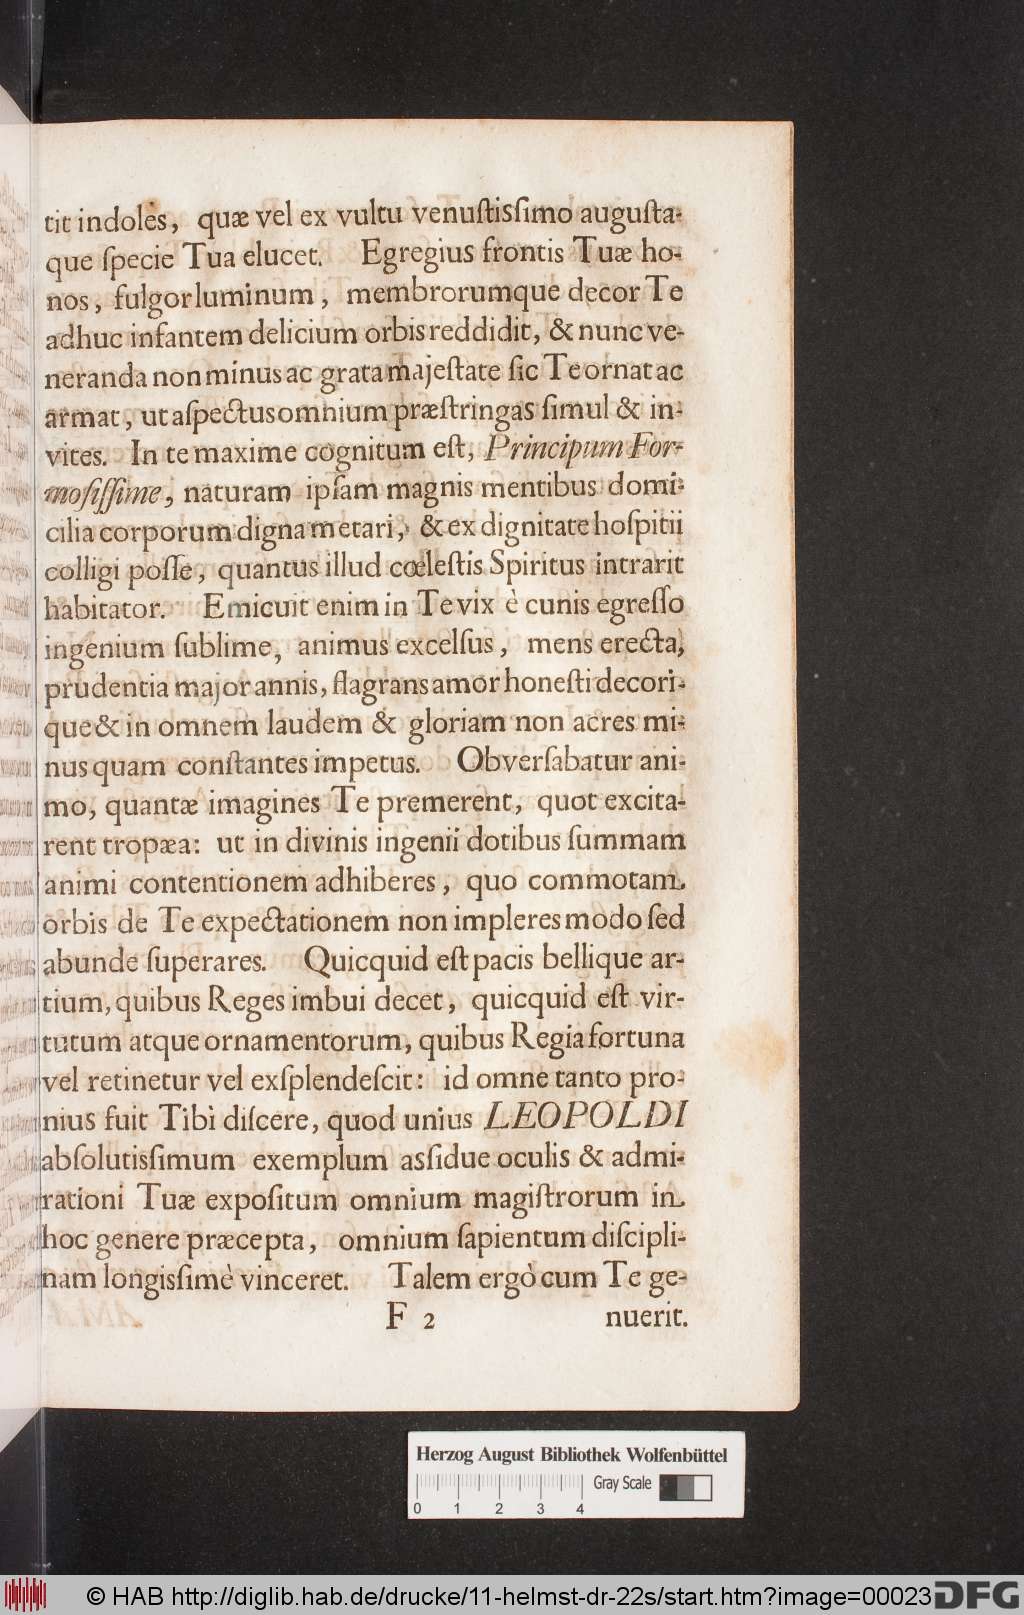 tit indoles, quæ vel ex vultu venuſtisſimo auguſta-
que ſpecie Tua elucet. Egregius frontis Tuæ ho-
nos, fulgor luminum, membrorumque decor Te
adhuc infantem delicium orbis reddidit, & nunc ve-
neranda non minus ac grata majeſtate ſic Te ornat ac
armat, ut aſpectus omnium præſtringas ſimul & in-
vites. In te maxime cognitum eſt, Principum For-
moſiſſime, naturam ipſam magnis mentibus domi-
cilia corporum digna metari, & ex dignitate hoſpitii
colligi poſſe, quantus illud cœleſtis Spiritus intrarit
habitator. Emicuit enim in Te vix è cunis egreſſo
ingenium ſublime, animus excelſus, mens erecta,
prudentia major annis, flagrans amor honeſti decori-
que & in omnem laudem & gloriam non acres mi-
nus quam conſtantes impetus. Obverſabatur ani-
mo, quantæ imagines Te premerent, quot excita-
rent tropæa: ut in divinis ingenii dotibus ſummam
animi contentionem adhiberes, quo commotam
orbis de Te expectationem non impleres modo ſed
abunde ſuperares. Quicquid eſt pacis bellique ar-
tium, quibus Reges imbui decet, quicquid eſt vir-
tutum atque ornamentorum, quibus Regia fortuna
vel retinetur vel exſplendeſcit: id omne tanto pro-
nius fuit Tibi diſcere, quod unius LEOPOLDI
abſolutisſimum exemplum asſidue oculis & admi-
rationi Tuæ expoſitum omnium magiſtrorum in
hoc genere præcepta, omnium ſapientum diſcipli-
nam longisſimè vinceret. Talem ergò cum Te ge-
F 2 nuerit.
Herzog August Bibliothek Wolfenbüttel
Gray Scale
0 1 2 3 4
© HAB http://diglib.hab.de/drucke/11-helmst-dr-22s/start.htm?image=00023
DFG